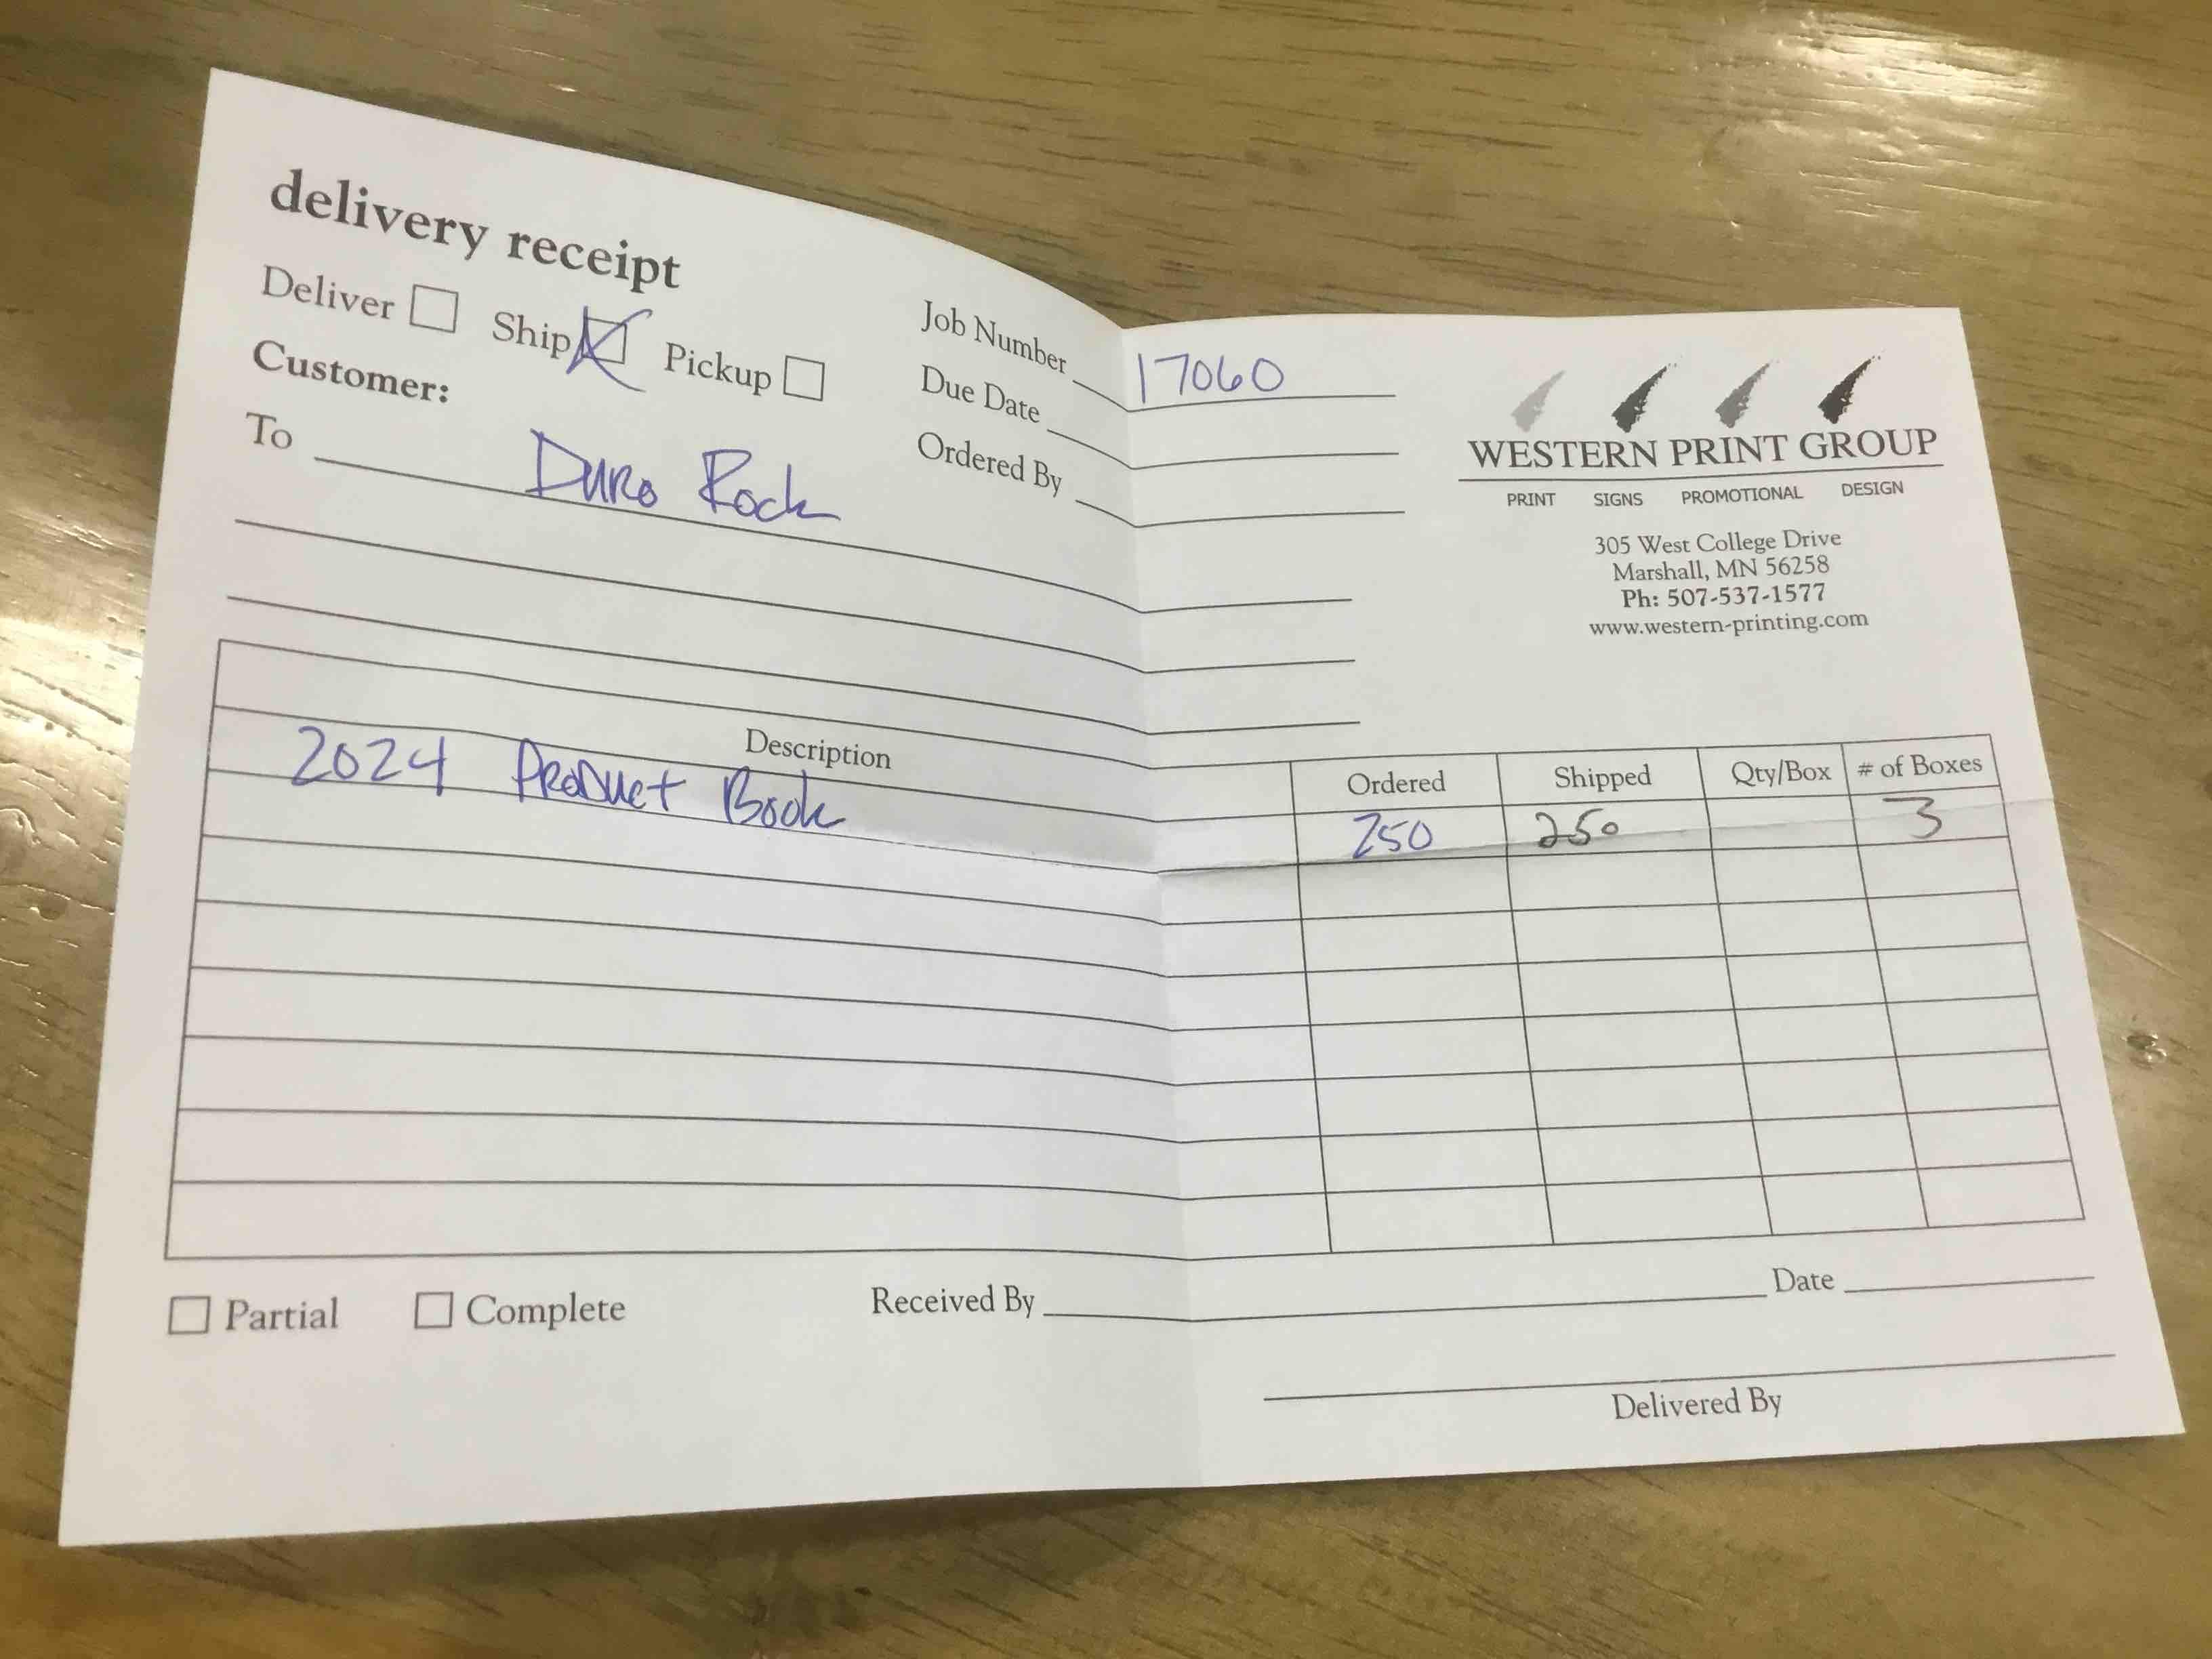 delivery receipt
Deliver Ship Pickup
Customer:
To Duro Rock
Job Number 17060
Due Date
Ordered By
WESTERN PRINT GROUP
PRINT SIGNS PROMOTIONAL DESIGN
305 West College Drive
Marshall, MN 56258
Ph: 507-537-1577
www.western-printing.com
Description Ordered Shipped Qty/Box # of Boxes
2024 Product Book 250 250 3
Partial Complete Received By Date
Delivered By